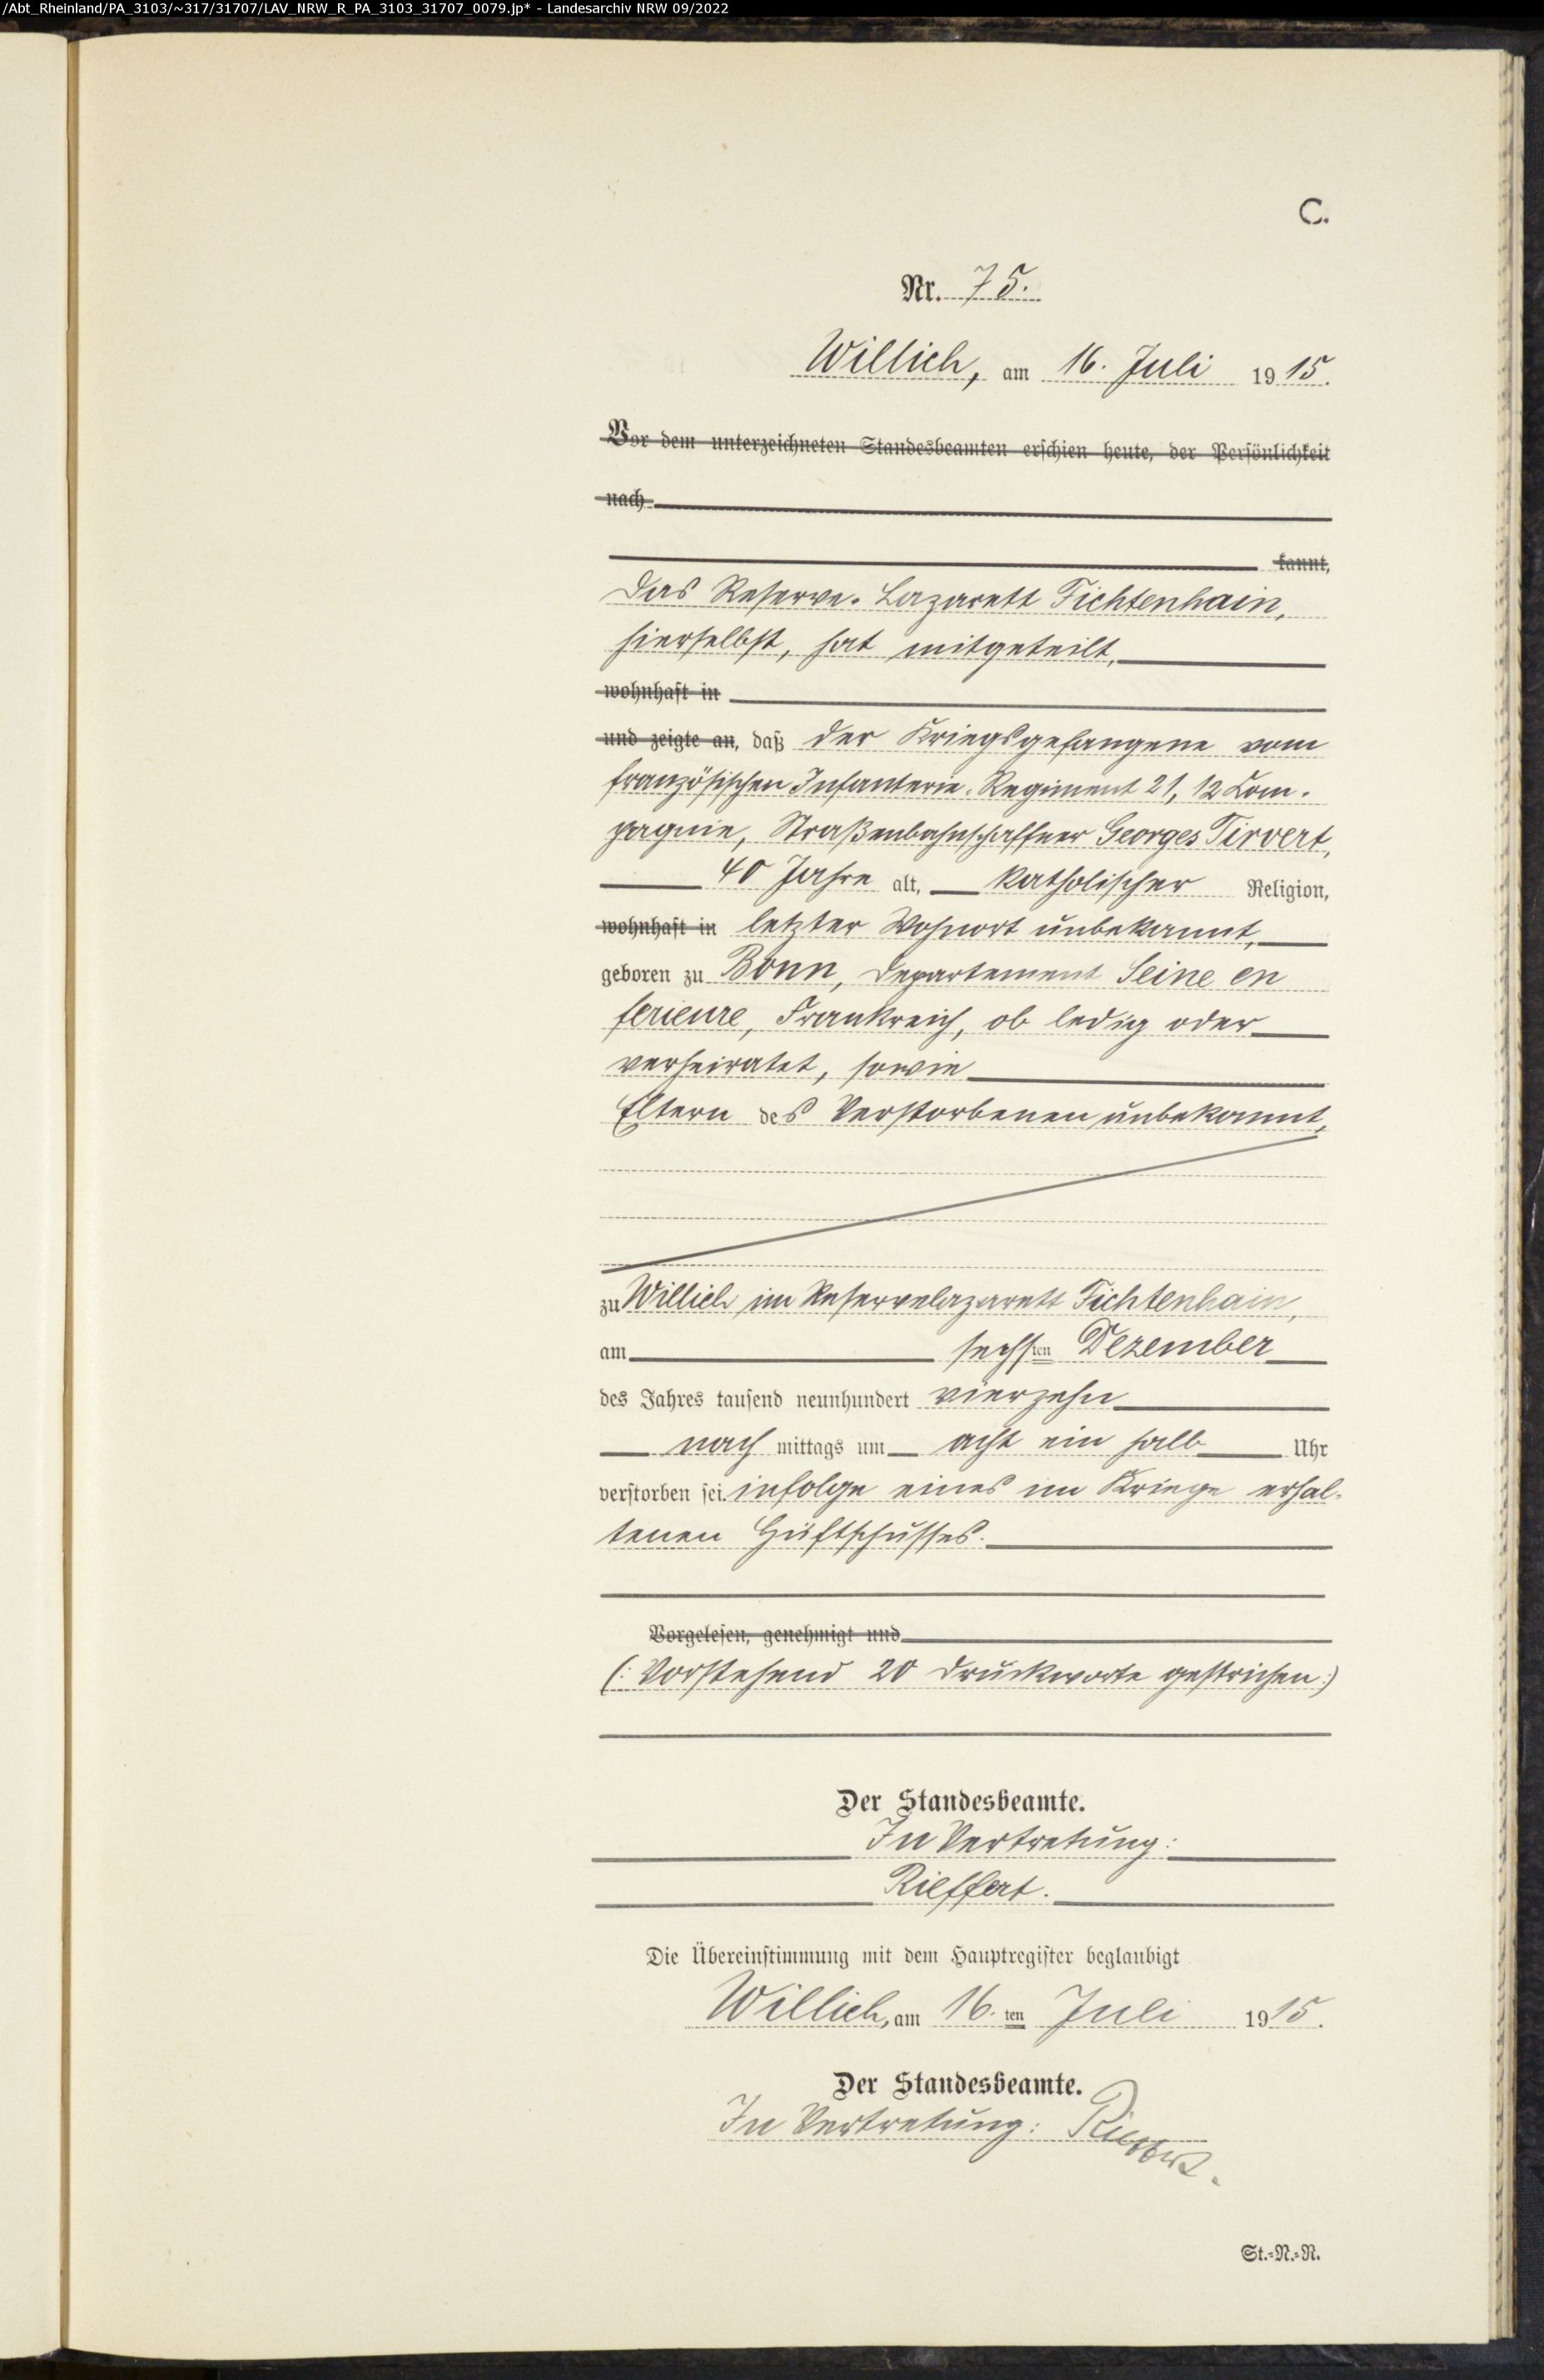 /Abt_Rheinland/PA_3103/~317/31707/LAV_NRW_R_PA_3103_31707_0079.jp* - Landesarchiv NRW 09/2022
C.
Nr. 75.
Willich, am 16. Juli 1915.
Vor dem unterzeichneten Standesbeamten erschien heute, der Persönlichkeit
nach
kannt,
Das Reserve-Lazarett Fichtenhain,
hierselbst, hat mitgeteilt,
wohnhaft in
und zeigte an, daß der Kriegsgefangene vom
französischen Infanterie-Regiment 21, 12 Com-
pagnie, Straßenbahnschaffner Georges Tirvert,
40 Jahre alt, katholischer Religion,
wohnhaft in letzter Wohnort unbekannt,
geboren zu Bonn, Departement Seine en
ferieure, Frankreich, ob ledig oder
verheiratet, sowie
Eltern des Verstorbenen unbekannt,
zu Willich im Reservelazarett Fichtenhain,
am sechsten Dezember
des Jahres tausend neunhundert vierzehn
nach mittags um acht ein halb Uhr
verstorben sei infolge eines im Kriege erhal-
tenen Hüftschusses.
Vorgelesen, genehmigt und
(: Vorstehend 20 Druckworte gestrichen :)
Der Standesbeamte.
In Vertretung:
Rieffert.
Die Übereinstimmung mit dem Hauptregister beglaubigt
Willich, am 16. ten Juli 1915.
Der Standesbeamte.
In Vertretung: Rieffert.
St.=N.=R.